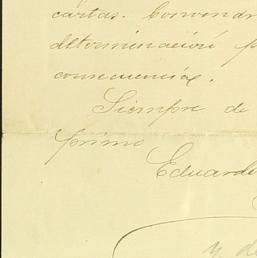 cartas. Convendr
determinación p
consecuencias.
Siempre de
primo
Eduardo
y de